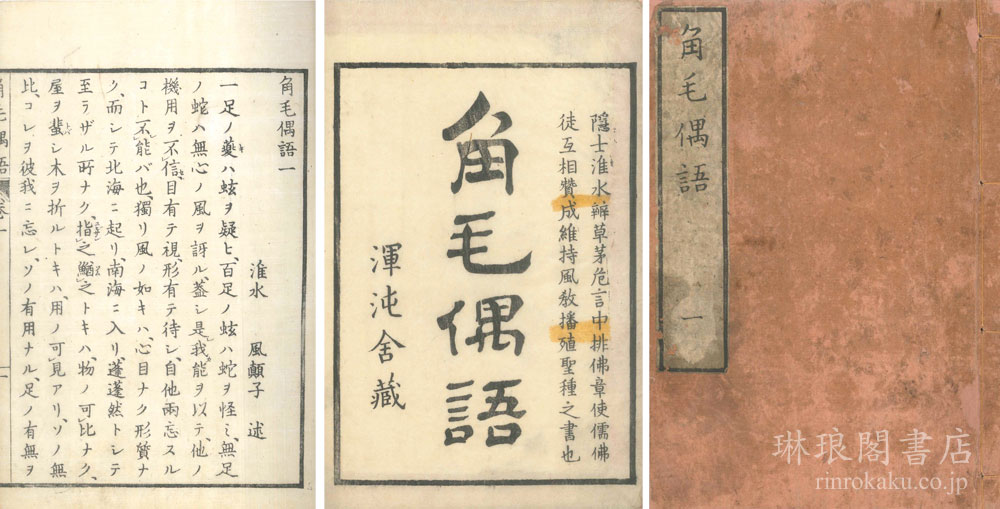 角毛偶語
一
隱士淮水辯草茅危言中排佛章使儒佛
徒互相贊成維持風敎播殖聖種之書也
角毛偶語
渾沌舍藏
角毛偶語一
淮水 風顚子 述
一足ノ夔ハ蚿ヲ疑ヒ、百足ノ蚿ハ蛇ヲ怪ミ、無足
ノ蛇ハ無心ノ風ヲ訝ル、蓋シ是我能ヲ以テ、他ノ
機用ヲ不信、目有テ視、形有テ待シ、自他兩忘スル
コト不能バ也、獨リ風ノ如キハ、心目ナク形質ナ
ク、而シテ北海ニ起リ、南海ニ入リ、蓬蓬然トシテ
至ラザル所ナク、指之鰌之トキハ、物ノ可比ナク、
屋ヲ蜚シ木ヲ折ルトキハ、用ノ可見アリ、ソノ無
比、コレヲ彼我ニ忘レ、ソノ有用ナル、足ノ有無ヲ
琳琅閣書店
rinrokaku.co.jp